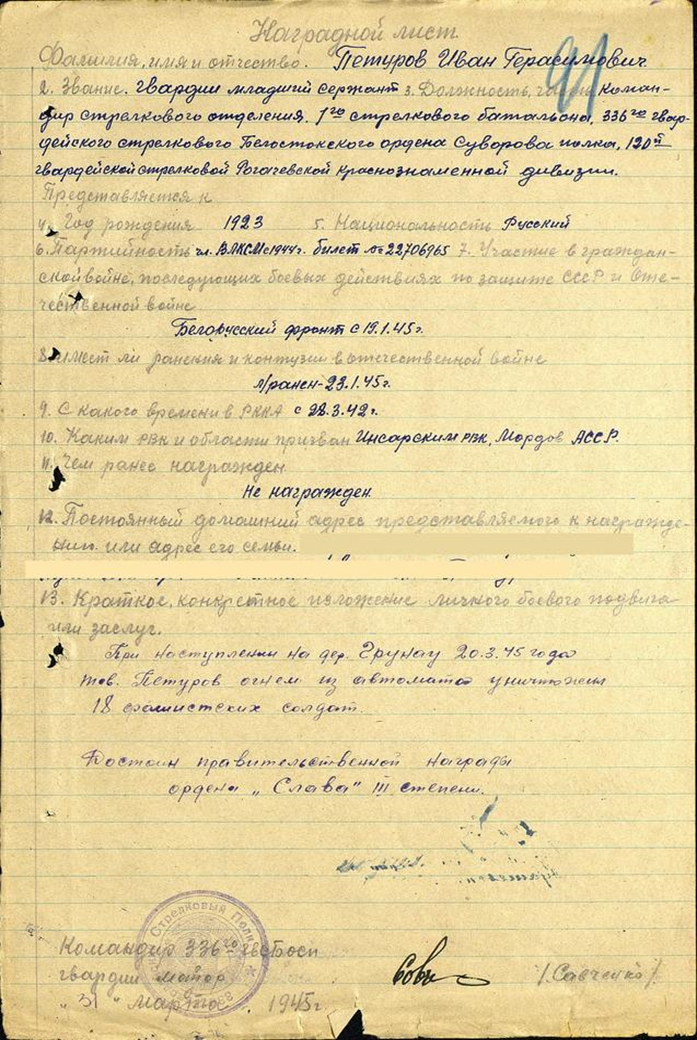 Наградной лист.
Фамилия, имя и отчество. Петуров Иван Герасимович
2. Звание. гвардии младший сержант 3. Должность, часть Коман-
дир стрелкового отделения, 1го стрелкового батальона, 336го гвар-
дейского стрелкового Белостокского ордена Суворова полка, 120й
гвардейской стрелковой Рогачевской краснознаменной дивизии.
Представляется к
4. Год рождения 1923 5. Национальность Русский
6. Партийность чл. ВЛКСМ с 1944г. билет № 22706965 7. Участие в граждан-
ской войне, последующих боевых действиях по защите СССР и Оте-
чественной войне
Белорусский фронт с 19.1.45г.
8. имеет ли ранения и контузии в отечественной войне
л/ранен - 23.1.45г.
9. С какого времени в РККА с 28.3.42г.
10. Каким РВК и области призван Инсарским РВК, Мордов АССР.
11. Чем ранее награжден
Не награжден
12. Постоянный домашний адрес представляемого к награжде-
нию или адрес его семьи.
13. Краткое, конкретное изложение личного боевого подвига
или заслуг.
При наступлении на дер. Грунау 20.3.45 года
тов. Петуров огнем из автомата уничтожил
18 фашистских солдат.
Достоин правительственной награды
ордена „Слава" III степени.
Стрелковый Полк
Командир 336го гв
гвардии майор
/Савченко/
„31" Марта 1945г.